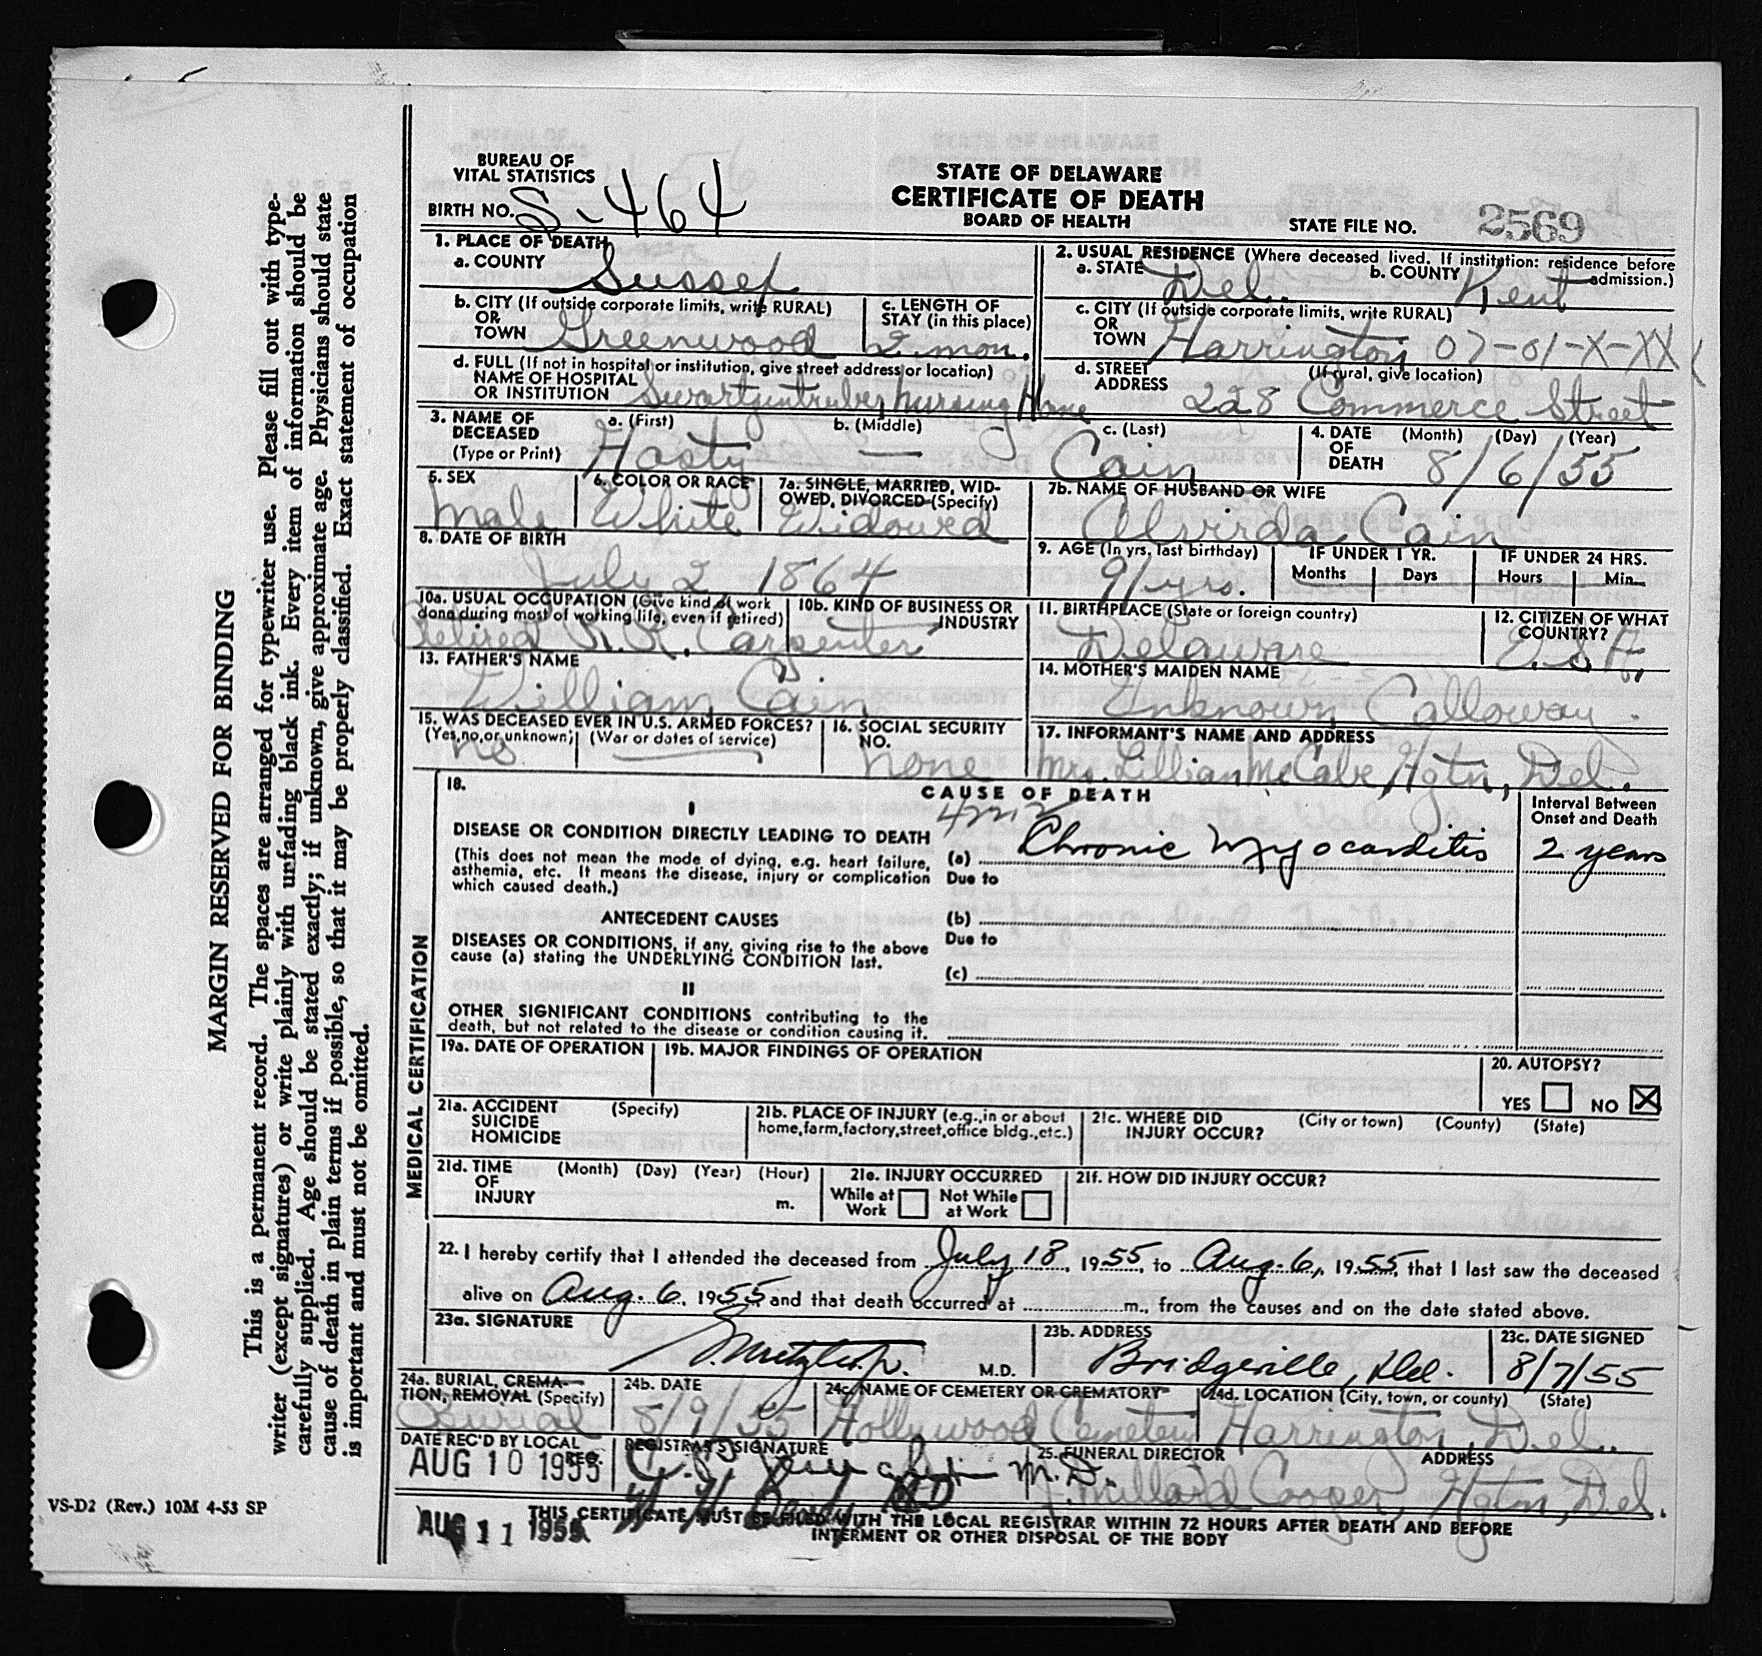 BUREAU OF
VITAL STATISTICS
BIRTH NO. S-464
STATE OF DELAWARE
CERTIFICATE OF DEATH
BOARD OF HEALTH
STATE FILE NO. 2569
1. PLACE OF DEATH
a. COUNTY Sussex
b. CITY (If outside corporate limits, write RURAL)
OR
TOWN Greenwood
c. LENGTH OF
STAY (in this place)
2 mon.
d. FULL (If not in hospital or institution, give street address or location)
NAME OF HOSPITAL
OR INSTITUTION Swartzentruber Nursing Home
2. USUAL RESIDENCE (Where deceased lived. If institution: residence before
admission.)
a. STATE Del. b. COUNTY Kent
c. CITY (If outside corporate limits, write RURAL)
OR
TOWN Harrington 07-01-X-XX
d. STREET (If rural, give location)
ADDRESS 228 Commerce Street
3. NAME OF
DECEASED
(Type or Print)
a. (First) b. (Middle) c. (Last)
Hasty — Cain
4. DATE (Month) (Day) (Year)
OF
DEATH 8/6/55
5. SEX
Male
6. COLOR OR RACE
White
7a. SINGLE, MARRIED, WID-
OWED, DIVORCED (Specify)
Widowed
7b. NAME OF HUSBAND OR WIFE
Alvirda Cain
8. DATE OF BIRTH
July 2 1864
9. AGE (In yrs. last birthday)
91 yrs.
IF UNDER 1 YR.
Months Days
IF UNDER 24 HRS.
Hours Min.
10a. USUAL OCCUPATION (Give kind of work
done during most of working life, even if retired)
Retired R.R. Carpenter
10b. KIND OF BUSINESS OR
INDUSTRY
11. BIRTHPLACE (State or foreign country)
Delaware
12. CITIZEN OF WHAT
COUNTRY?
U.S.A.
13. FATHER'S NAME
William Cain
14. MOTHER'S MAIDEN NAME
Unknown Calloway
15. WAS DECEASED EVER IN U.S. ARMED FORCES?
(Yes, no, or unknown) (War or dates of service)
no —
16. SOCIAL SECURITY
NO.
none
17. INFORMANT'S NAME AND ADDRESS
Mrs. Lillian McCabe, Hgtn, Del.
MEDICAL CERTIFICATION
18.
CAUSE OF DEATH
Interval Between
Onset and Death
I
DISEASE OR CONDITION DIRECTLY LEADING TO DEATH
(This does not mean the mode of dying, e.g. heart failure,
asthema, etc. It means the disease, injury or complication
which caused death.)
(a) Chronic Myocarditis 2 years
Due to
ANTECEDENT CAUSES
(b)
DISEASES OR CONDITIONS, if any, giving rise to the above
cause (a) stating the UNDERLYING CONDITION last.
Due to
(c)
II
OTHER SIGNIFICANT CONDITIONS contributing to the
death, but not related to the disease or condition causing it.
19a. DATE OF OPERATION
19b. MAJOR FINDINGS OF OPERATION
20. AUTOPSY?
YES NO X
21a. ACCIDENT (Specify)
SUICIDE
HOMICIDE
21b. PLACE OF INJURY (e.g., in or about
home, farm, factory, street, office bldg., etc.)
21c. WHERE DID (City or town) (County) (State)
INJURY OCCUR?
21d. TIME (Month) (Day) (Year) (Hour)
OF
INJURY m.
21e. INJURY OCCURRED
While at Not While
Work at Work
21f. HOW DID INJURY OCCUR?
22. I hereby certify that I attended the deceased from July 18, 1955, to Aug. 6, 1955, that I last saw the deceased
alive on Aug. 6, 1955, and that death occurred at m., from the causes and on the date stated above.
23a. SIGNATURE
M.D.
23b. ADDRESS
Bridgeville, Del.
23c. DATE SIGNED
8/7/55
24a. BURIAL, CREMA-
TION, REMOVAL (Specify)
Burial
24b. DATE
8/9/55
24c. NAME OF CEMETERY OR CREMATORY
Hollywood Cemetery
24d. LOCATION (City, town, or county) (State)
Harrington, Del.
DATE REC'D BY LOCAL
REG.
AUG 10 1955
REGISTRAR'S SIGNATURE
M.D.
25. FUNERAL DIRECTOR ADDRESS
J. Millard Cooper, Hgtn, Del.
AUG 11 1955
THIS CERTIFICATE MUST BE FILED WITH THE LOCAL REGISTRAR WITHIN 72 HOURS AFTER DEATH AND BEFORE
INTERMENT OR OTHER DISPOSAL OF THE BODY
MARGIN RESERVED FOR BINDING
This is a permanent record. The spaces are arranged for typewriter use. Please fill out with type-
writer (except signatures) or write plainly with unfading black ink. Every item of information should be
carefully supplied. Age should be stated exactly; if unknown, give approximate age. Physicians should state
cause of death in plain terms if possible, so that it may be properly classified. Exact statement of occupation
is important and must not be omitted.
VS-D2 (Rev.) 10M 4-53 SP